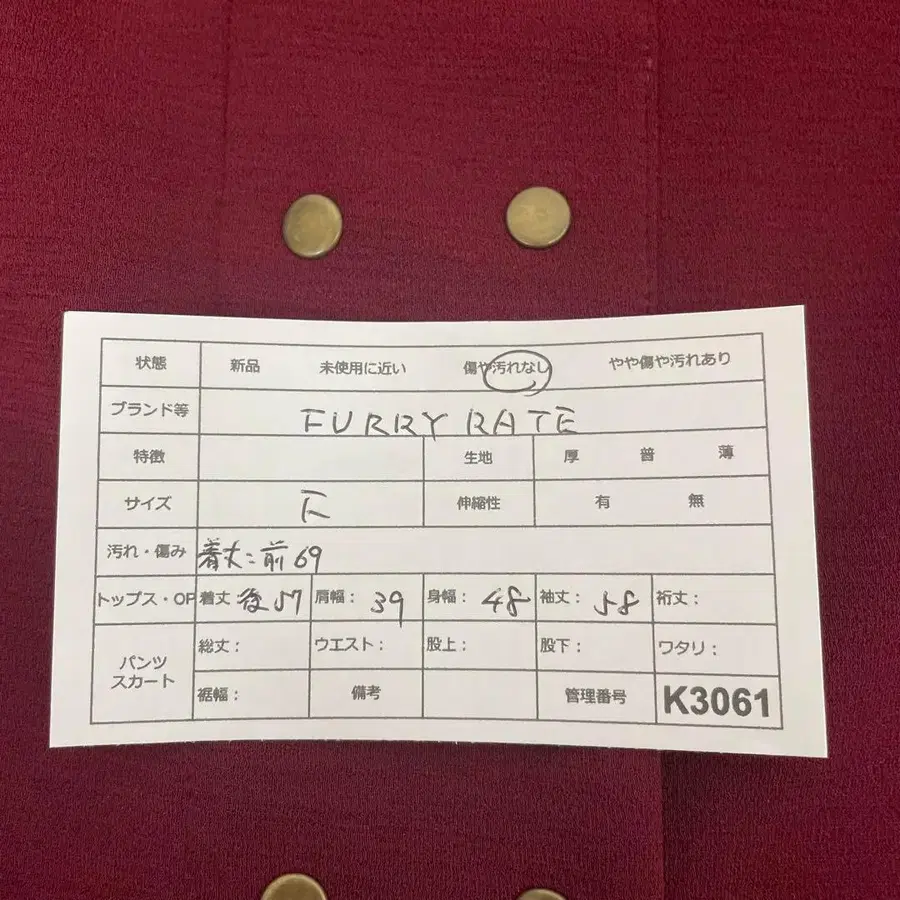 状態 新品 未使用に近い 傷や汚れなし やや傷や汚れあり
ブランド等 FURRY RATE
特徴 生地 厚 普 薄
サイズ F 伸縮性 有 無
汚れ・傷み 着丈:前69
トップス・OP 着丈:後57 肩幅: 39 身幅: 48 袖丈: 58 裄丈:
パンツ スカート 総丈: ウエスト: 股上: 股下: ワタリ:
裾幅: 備考 管理番号 K3061